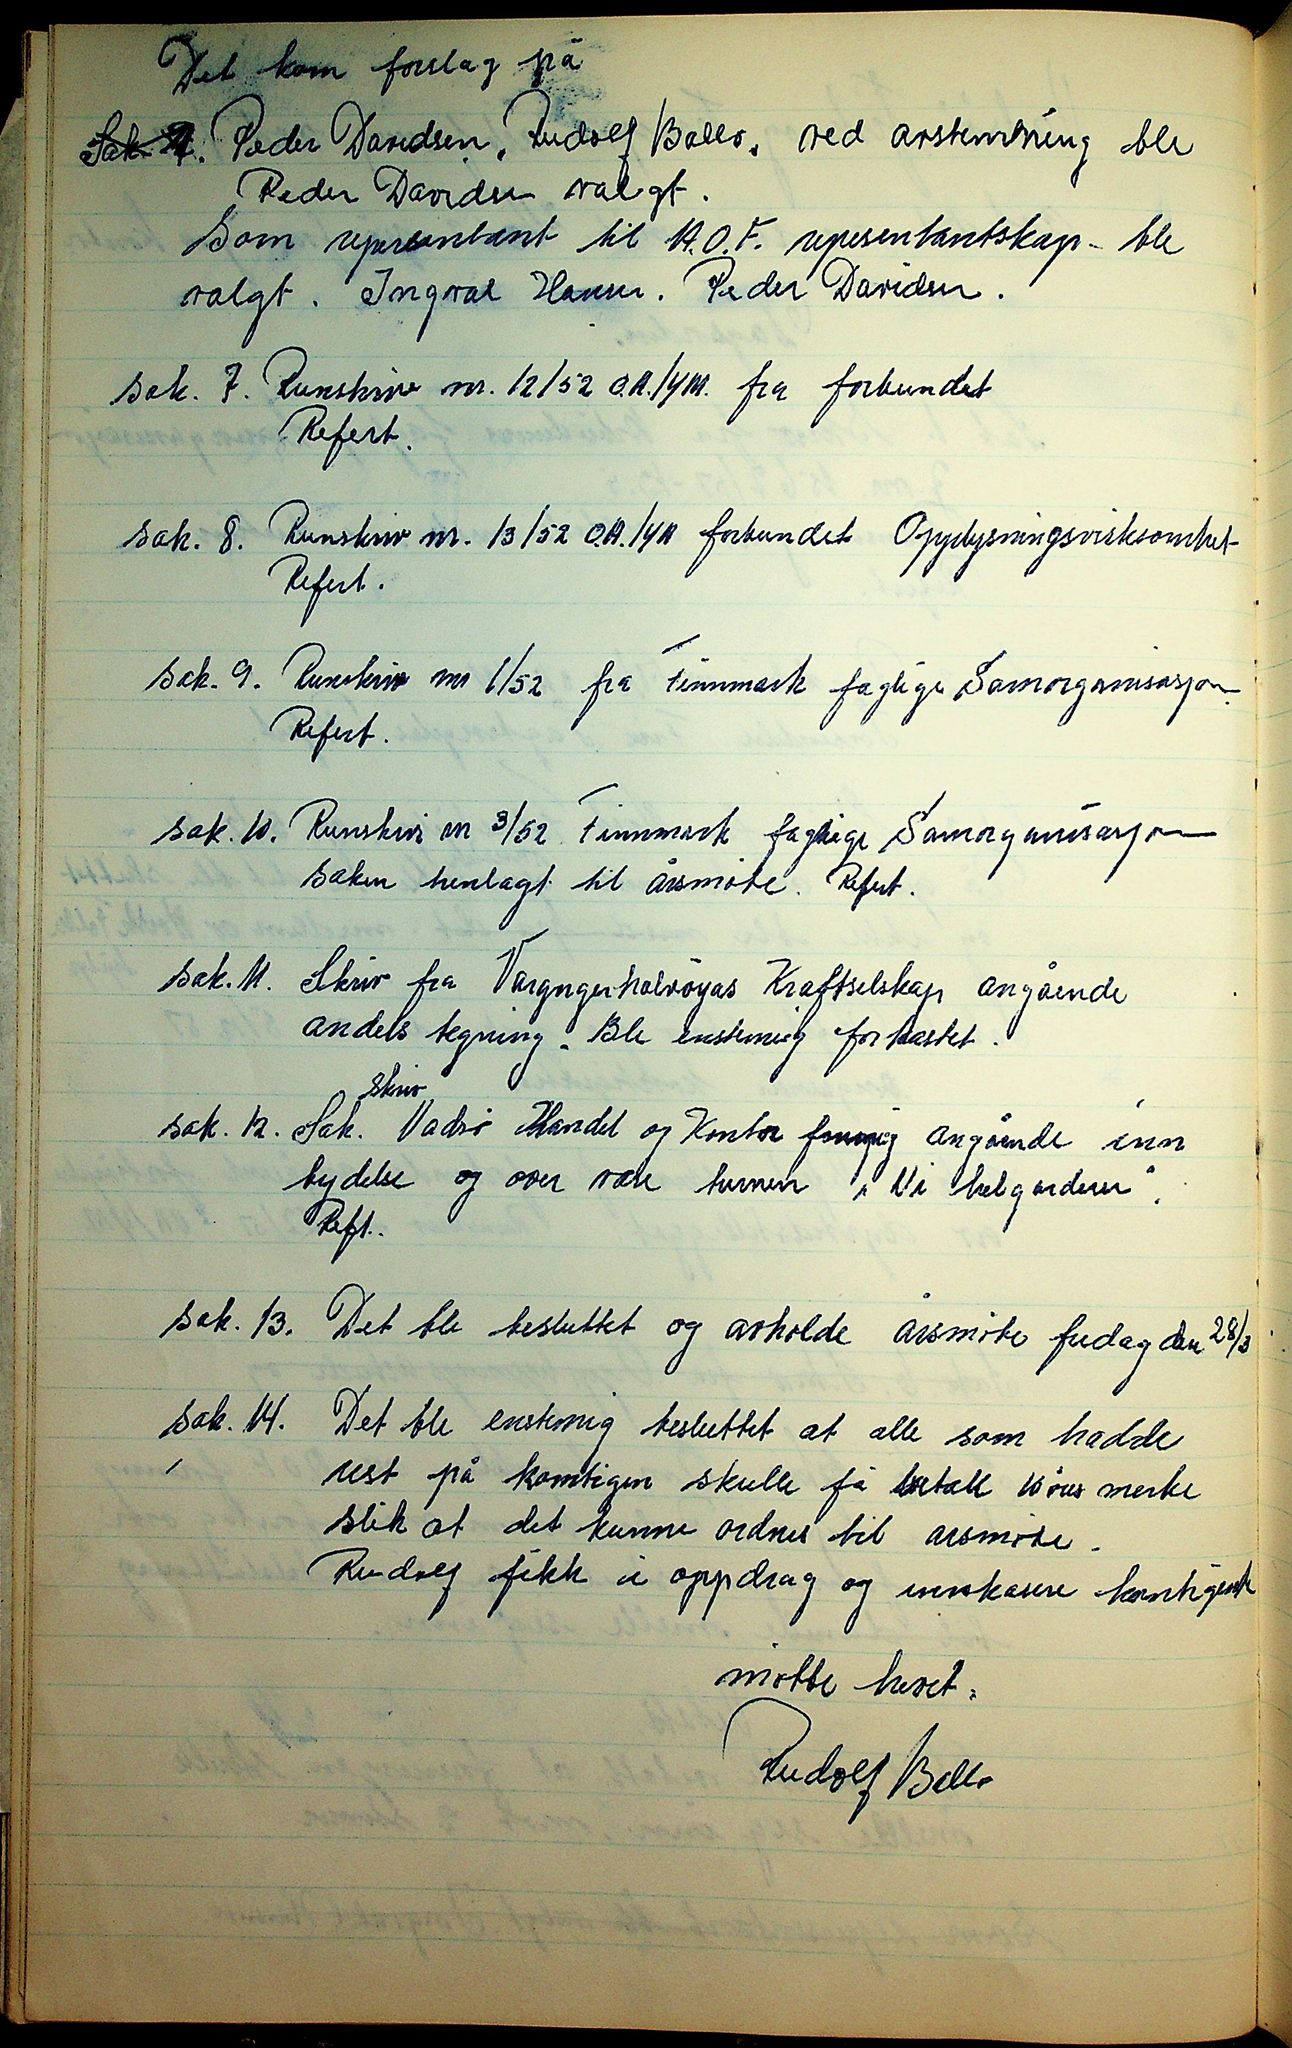 Det kom forslag på
Sak 7. Peder Davidsen, Rudolf Ballo. ved avstemning ble
Peder Davidsen valgt.
Som representant til A.O.F. representantskap - ble
valgt. Ingval Hansen. Peder Davidsen.
sak. 7. Runskriv nr. 12/52 O.A./YM. fra forbundet
Refert.
sak. 8. Runskriv nr. 13/52 O.A./YM forbundet Opplysningsvirksomhet
Refert.
sak. 9. Runskriv nr 1/52 fra Finnmark faglige Samorganisasjon.
Refert.
sak. 10. Runskriv nr 3/52 Finnmark faglige Samorganisasjon
saken henlagt til årsmøte. Refert.
sak. 11. Skriv fra Vargngerhalvøyas Kraftselskap angående
andels tegning. Ble enstemig forkastet.
skriv
sak. 12. Sak. Vadsø Handel og Kontor angående inn
bydelse og over være turnen "Vi helgarderer".
Reft.
sak. 13. Det ble besluttet og avholde årsmøte fredag den 28/3
sak. 14. Det ble enstemig besluttet at alle som hadde
rest på kontigen skulle få betale 10 øres merke
slik at det kunne ordnes til årsmøte.
Rudolf fikk i oppdrag og innkasere kontigente
møtte hevet.
Rudolf Ballo